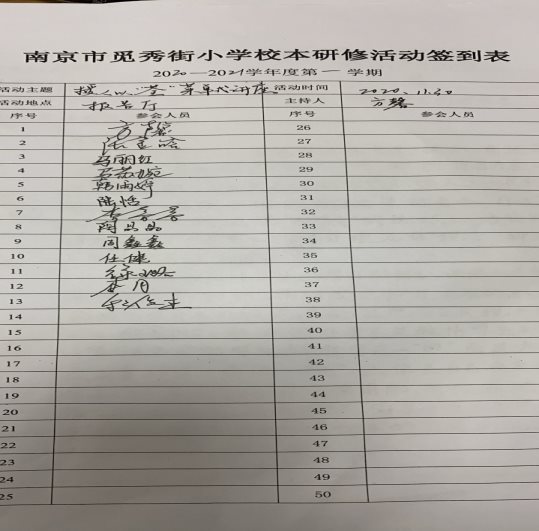 南京市觅秀街小学校本研修活动签到表
2020—2021学年度第一学期
活动主题 活动时间 2020.11.30
活动地点 报告厅 主持人 方馨
序号 参会人员 序号 参会人员
1 方馨 26
2 27
3 马丽红 28
4 29
5 韩雨婷 30
6 陆恬 31
7 李音音 32
8 陶昌昌 33
9 周鑫鑫 34
10 任健 35
11 36
12 李月 37
13 38
14 39
15 40
16 41
17 42
18 43
19 44
20 45
21 46
22 47
23 48
24 49
25 50